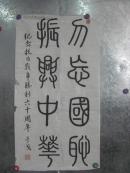 勿忘國恥
振興中華
紀念抗日戰爭勝利六十周年